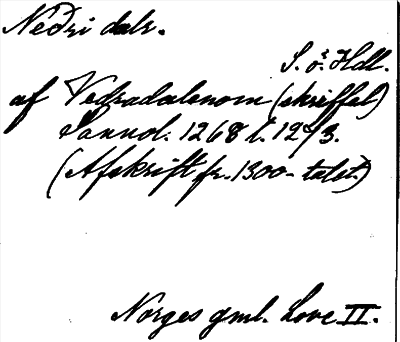 Neðri dalr.
S. ö. Hdl.
af Veðradalenom (skriffel)
Sannol. 1268 l. 1273.
(Afskrift fr. 1300-talet.)
Norges gml. Love II.